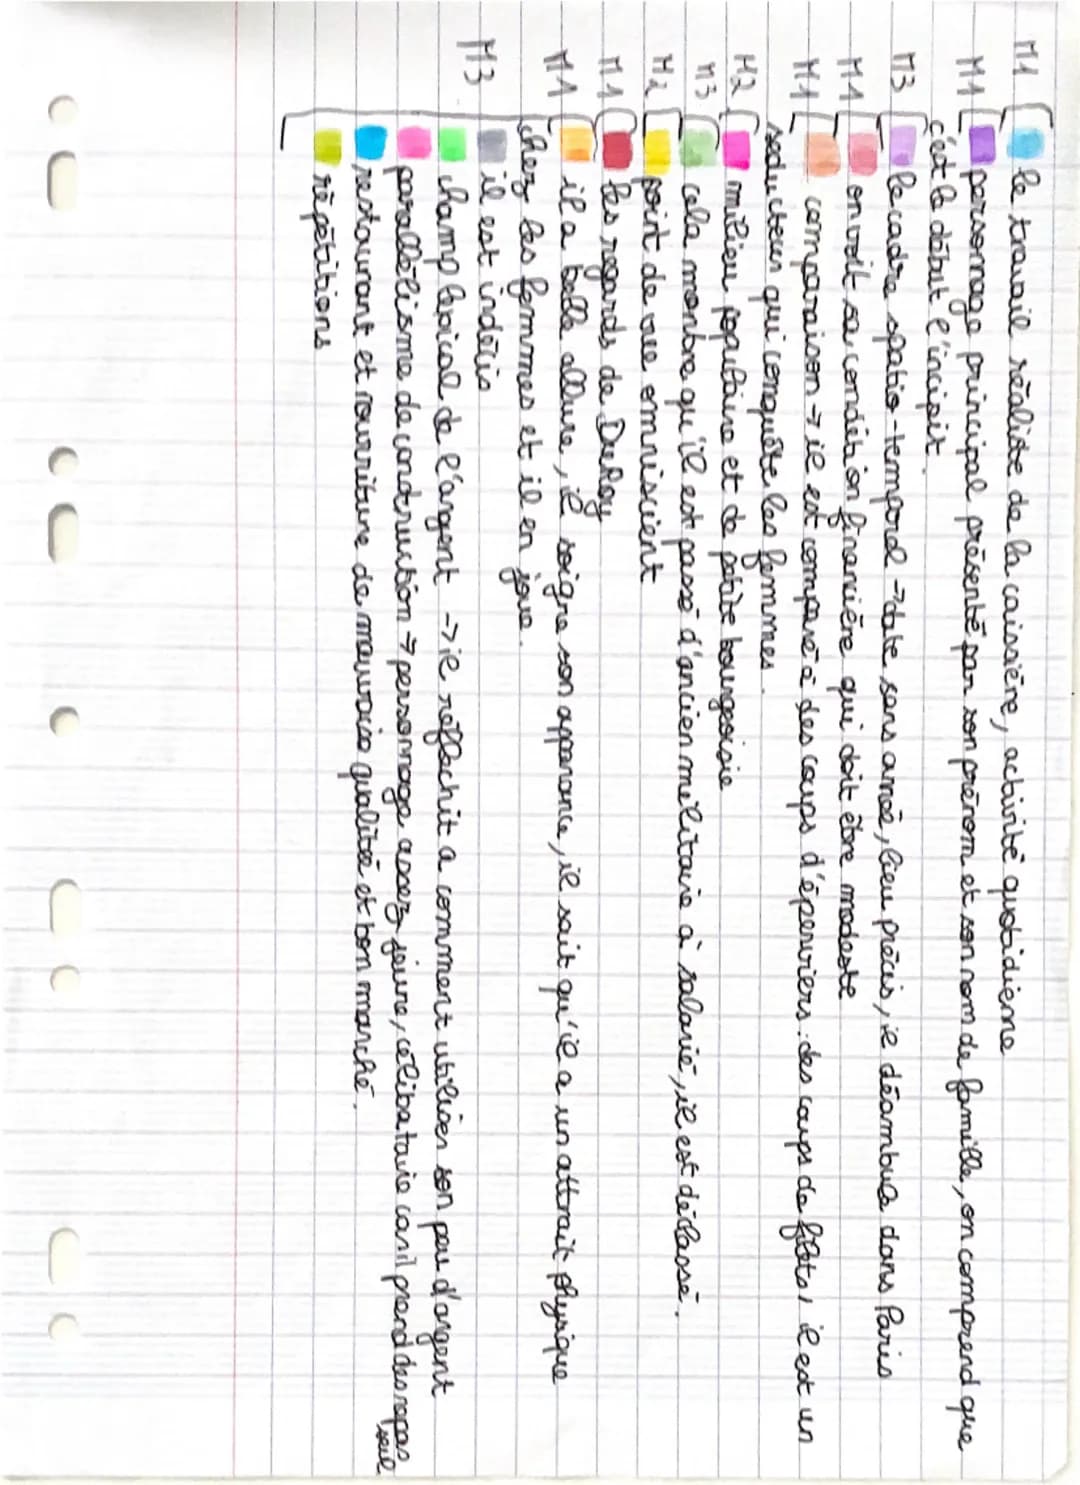 M1 le travail réaliste de la caissière, activité quotidienne
M1 personnage principal présenté par son prénom et son nom de famille, on comprend que
c'est le début l'incipit.
M3 le cadre spatio-temporel → date sans année, lieu précis, il déambule dans Paris
M1 on voit sa condition financière qui doit être modeste
M1 comparaison → il est comparé à des coups d'éperviers : des coups de filets, il est un
séducteur qui conquête les femmes.
M2 milieu populaire et de petite bourgeoisie
M3 cela montre qu'il est passé d'ancien militaire à salarié, il est déclassé.
M2 point de vue omniscient
M1 les regards de DuRoy
M1 il a belle allure, il soigne son apparance, il sait qu'il a un attrait physique
chez les femmes et il en joue.
il est indécis
M3 champ lexical de l'argent → il réflechit a comment utiliser son peu d'argent
parallélisme de construction → personnage assez jeune, célibataire car il prend des repas seul
restaurant et nourriture de mauvaise qualité et bon marché.
répétitions